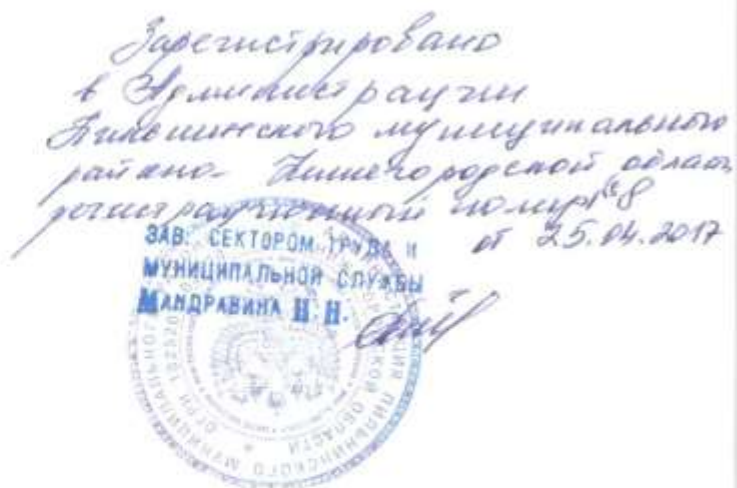 Зарегистрировано
в Администрации
Пильнинского муниципального
района Нижегородской области
регистрационный номер №8
от 25.04.2017
ЗАВ. СЕКТОРОМ ТРУДА И
МУНИЦИПАЛЬНОЙ СЛУЖБЫ
МАНДРАВИНА Н. Н.
ПИЛЬНИНСКОГО МУНИЦИПАЛЬНОГО
ОБЛАСТИ
ОГРН